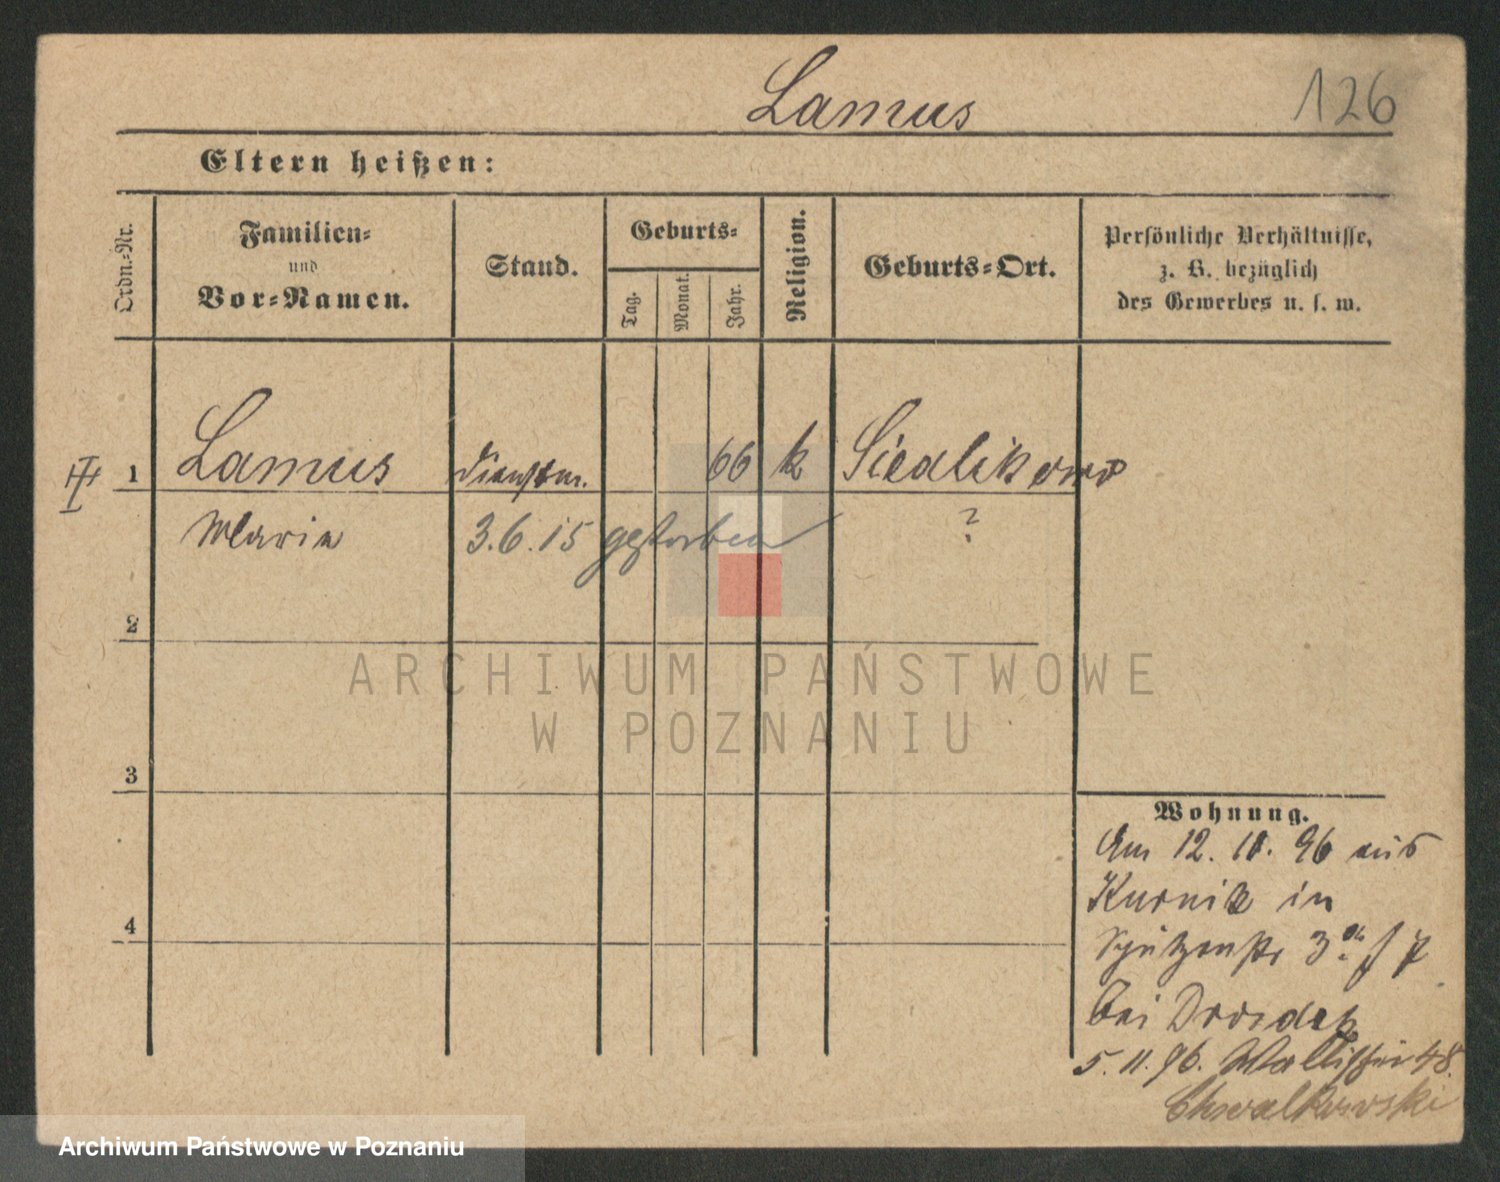 Lamus
126
Eltern heißen:
Ordn.-Nr.
Familien-
und
Vor-Namen.
Stand.
Geburts-
Tag.
Monat.
Jahr.
Religion.
Geburts-Ort.
Persönliche Verhältnisse,
z. B. bezüglich
des Gewerbes u. s. w.
1 Lamus dienstm. 66 k Siedlikowo
Maria 3.6.15 gestorben ?
2
ARCHIWUM PAŃSTWOWE
W POZNANIU
3
Wohnung.
Am 12. 10. 96 aus
Kurnik in
Schützenstr 3
4
bei Drozdek
5. 11. 96. Wallischei 48.
Chwalkowski
Archiwum Państwowe w Poznaniu